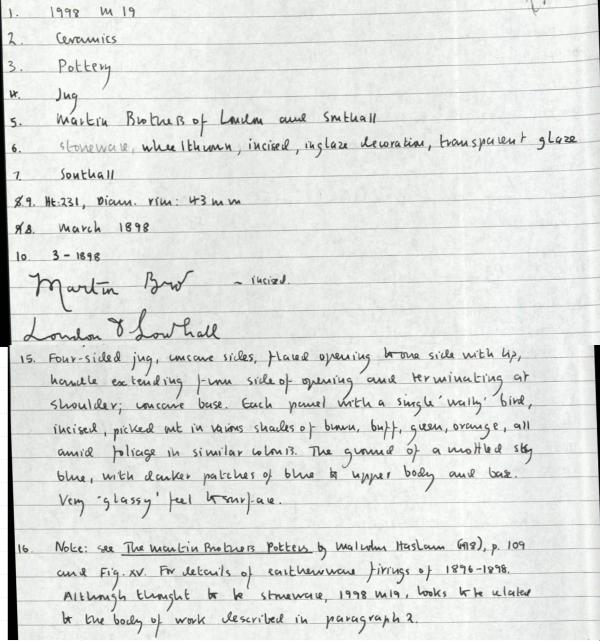 1. 1998 M 19
2. Ceramics
3. Pottery
4. Jug
5. Martin Brothers of London and Southall
6. stoneware, wheelthrown, incised, inglaze decoration, transparent glaze
7. Southall
8.9. Ht: 231, Diam. rim: 43 mm
9.8. March 1898
10. 3-1898
Martin Bros ~ incised.
London & Southall
15. Four-sided jug, concave sides, flared opening to one side with lip,
handle extending from side of opening and terminating at
shoulder; concave base. Each panel with a single 'wally' bird,
incised, picked out in various shades of brown, buff, green, orange, all
amid foliage in similar colours. The ground of a mottled sky
blue, with darker patches of blue to upper body and base.
Very 'glassy' feel to surface.
16. Note: see The Martin Brothers Potters by Malcolm Haslam (1978), p. 109
and Fig. XV. For details of earthenware firings of 1896-1898.
Although thought to be stoneware, 1998 M19, looks to be related
to the body of work described in paragraph 2.